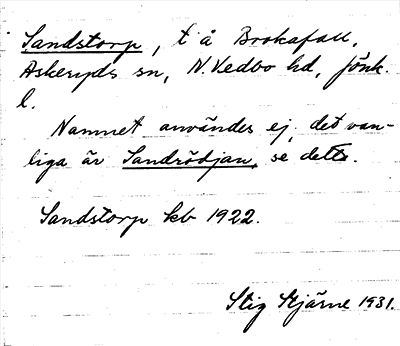 Sandstorp, t å Brokafall,
Askeryds sn, N. Vedbo hd, Jönk.
l.
Namnet användes ej, det van-
liga är Sandrödjan, se detta.
Sandstorp kb 1922.
Stig Stjärne 1931.